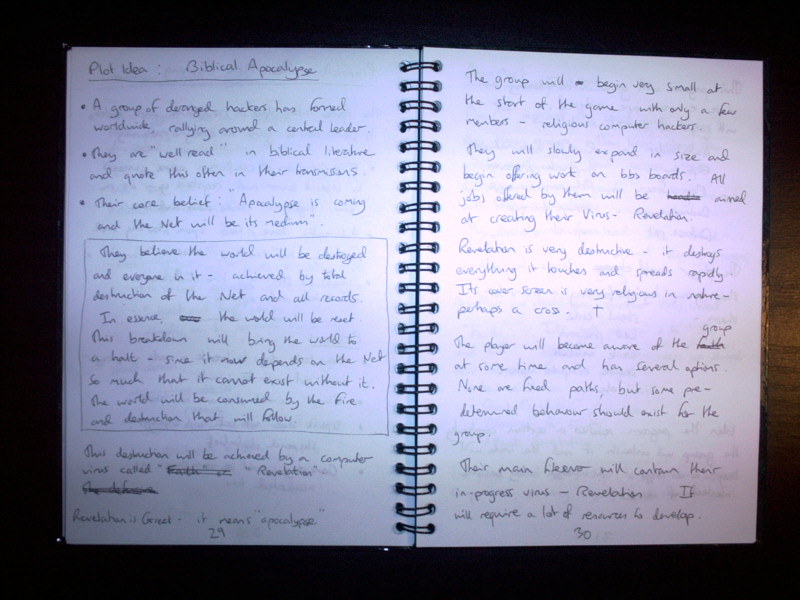 Plot Idea : Biblical Apocalypse
• A group of deranged hackers has formed
worldwide, rallying around a central leader.
• They are "well read" in biblical literature
and quote this often in their transmissions.
• Their core belief: "Apocalypse is coming
and the Net will be its medium".
They believe the world will be destroyed
and everyone in it - achieved by total
destruction of the Net and all records.
In essence, the world will be reset.
This breakdown will bring the world to
a halt - since it now depends on the Net
so much that it cannot exist without it.
The world will be consumed by the fire
and destruction that will follow.
This destruction will be achieved by a computer
virus called "Faith" or "Revelation"
Revelation is Greek - it means "apocalypse"
29
The group will begin very small at
the start of the game with only a few
members - religious computer hackers.
They will slowly expand in size and
begin offering work on bbs boards. All
jobs offered by them will be aimed
at creating their Virus - Revelation.
Revelation is very destructive - it destroys
everything it touches and spreads rapidly.
Its cover screen is very religious in nature -
perhaps a cross. †
group
The player will become aware of the faith
at some time and has several options.
None are fixed paths, but some pre-
determined behaviour should exist for the
group.
Their main fileserver will contain their
in-progress virus - Revelation It
will require a lot of resources to develop.
30